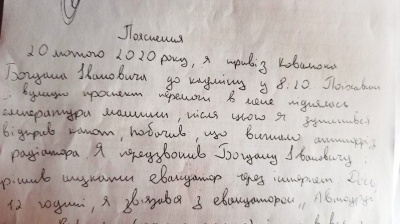 Пояснення
20 лютого 2020 року, я привіз Коваленка
Богдана Івановича до кадміну у 8:20. Поїхавши
вулицю проспект перемоги в мене піднялась
температура машини, після цього я зупинився
відкрив капот, побачив, що витекло
з радіатора. Я передзвонив Богдану Івановичу
рішив шукати евакуатор через інтернет
12 годині, я зв'язався з евакуатором